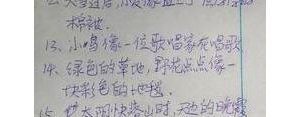 棉被.
13、小鸟像一位歌唱家在唱歌
14、绿色的草地,野花点点像一
块彩色的地毯.
太阳快落山时,天边的晚霞